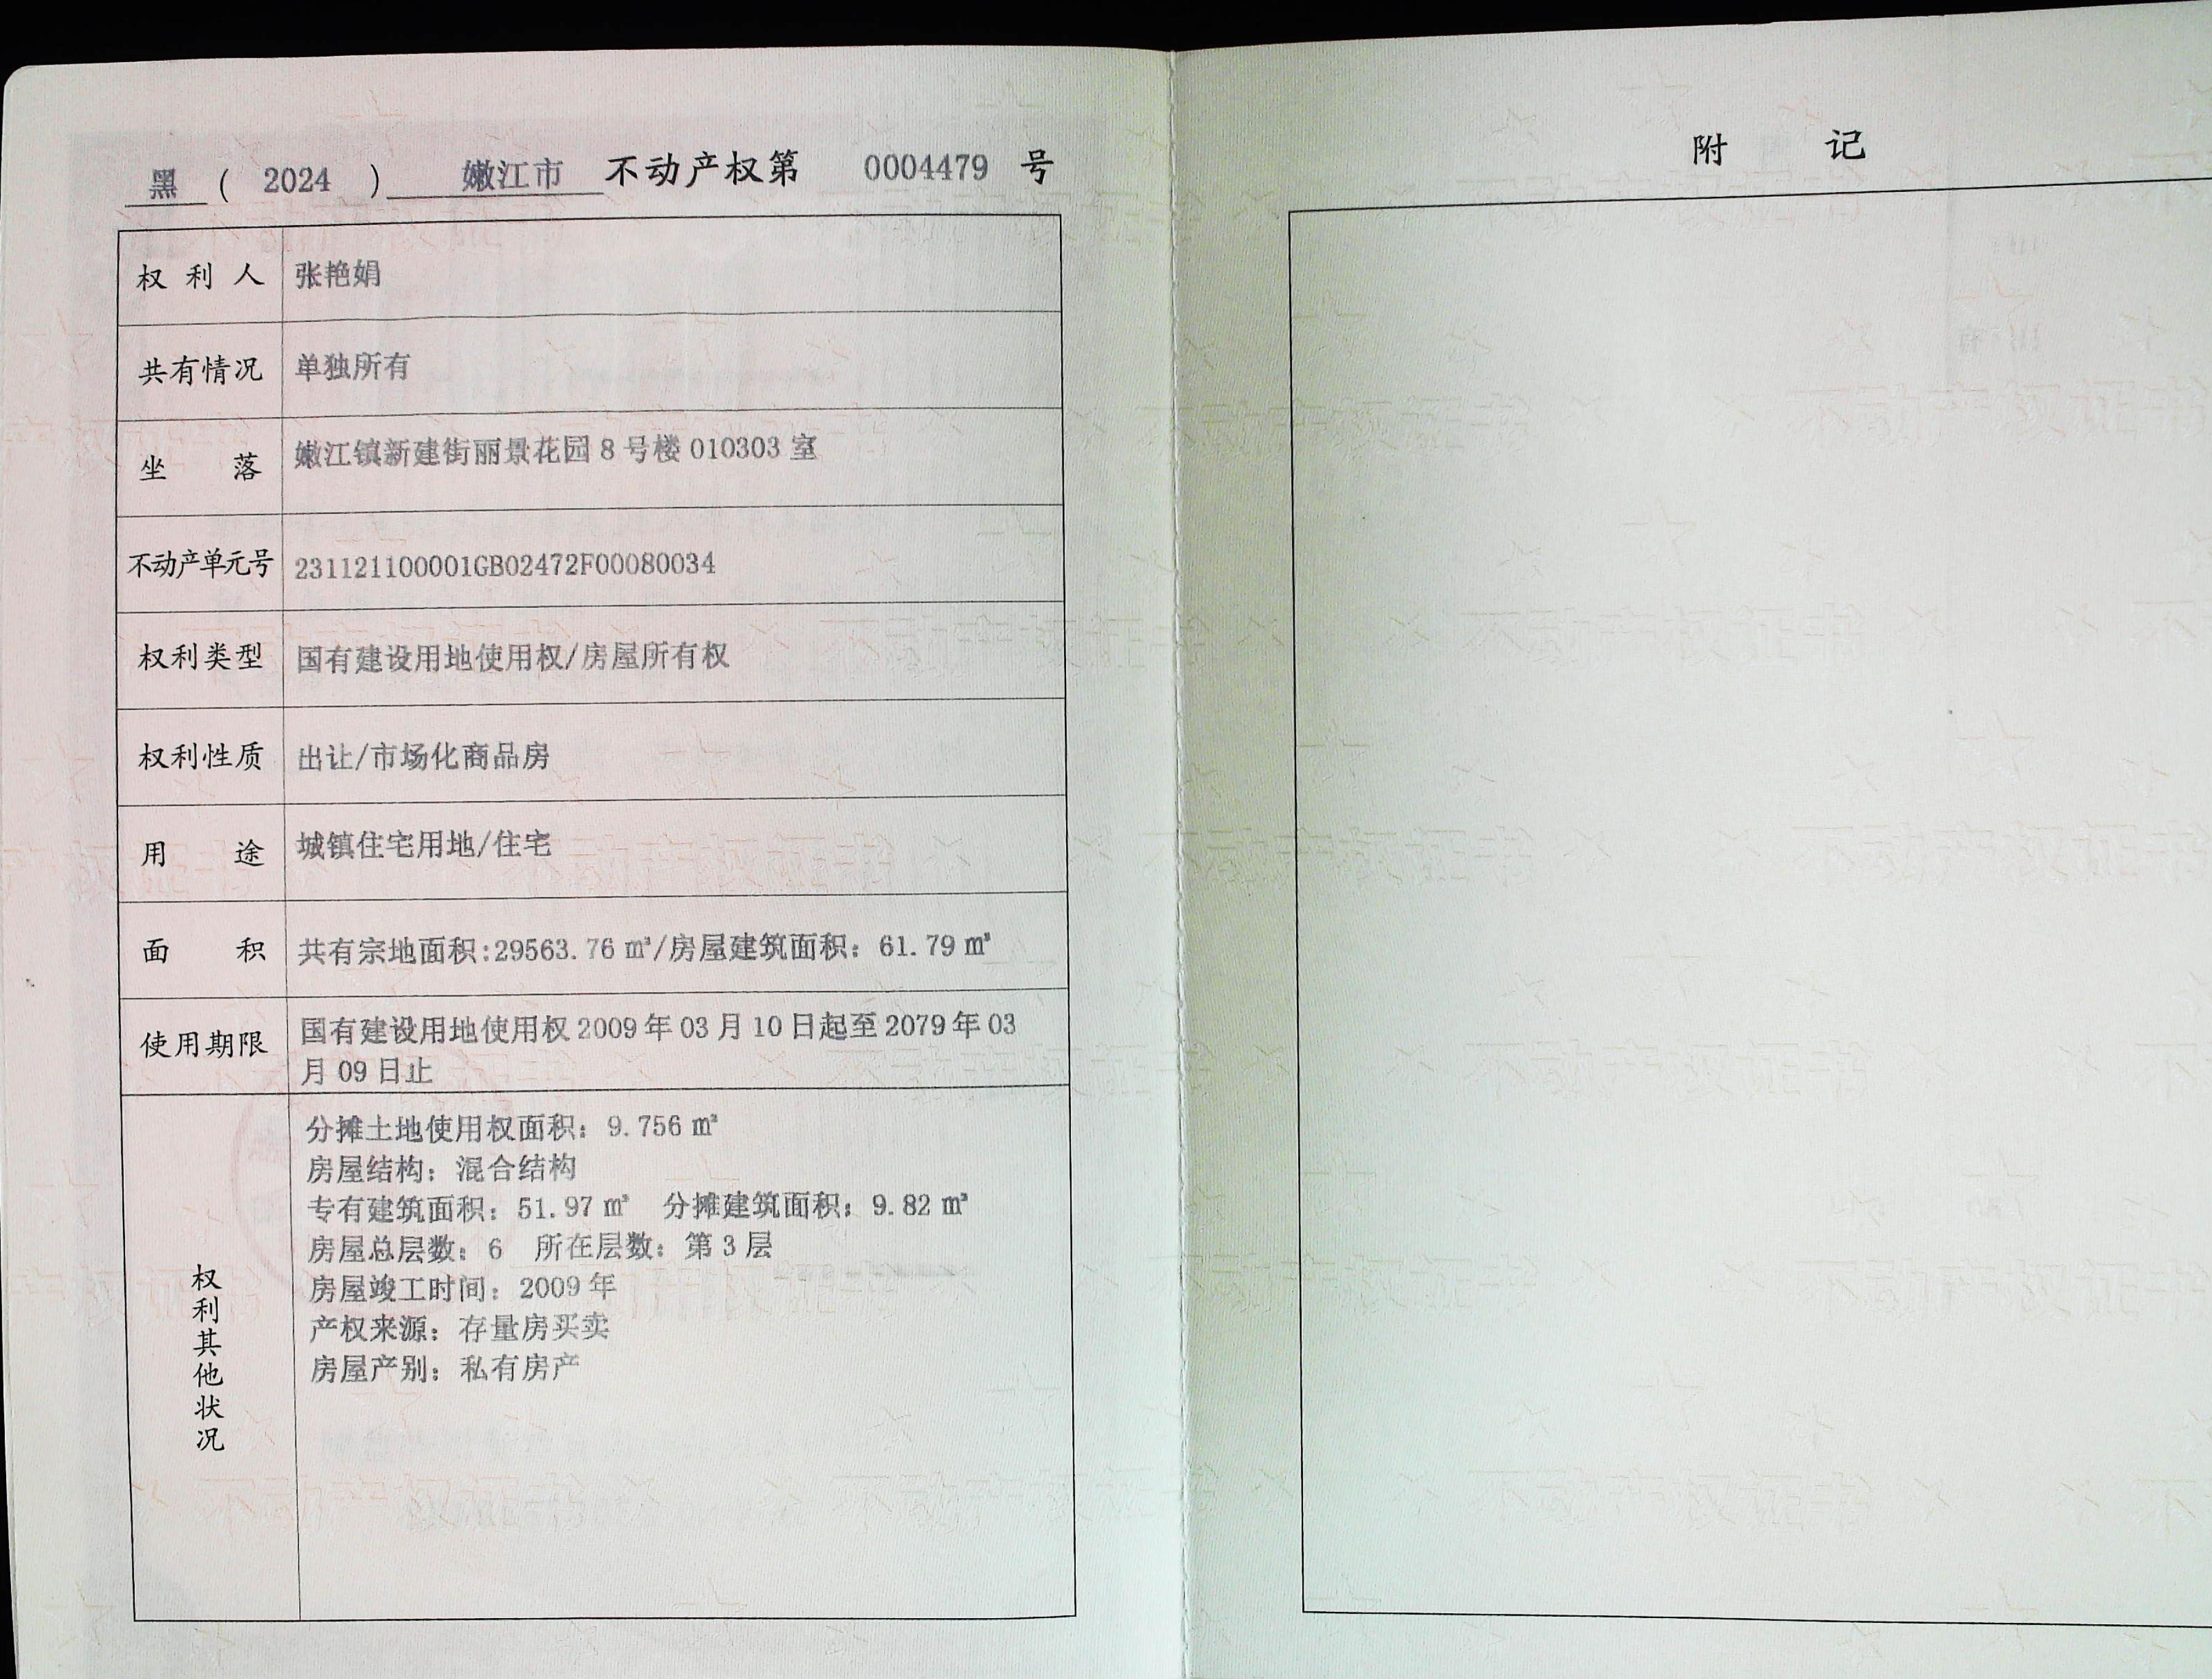 黑 ( 2024 ) 嫩江市 不动产权第 0004479 号
权利人 张艳娟
共有情况 单独所有
坐落 嫩江镇新建街丽景花园 8 号楼 010303 室
不动产单元号 231121100001GB02472F00080034
权利类型 国有建设用地使用权/房屋所有权
权利性质 出让/市场化商品房
用途 城镇住宅用地/住宅
面积 共有宗地面积:29563.76 ㎡/房屋建筑面积：61.79 ㎡
使用期限 国有建设用地使用权 2009 年 03 月 10 日起至 2079 年 03
月 09 日止
权利其他状况
分摊土地使用权面积：9.756 ㎡
房屋结构：混合结构
专有建筑面积：51.97 ㎡ 分摊建筑面积：9.82 ㎡
房屋总层数：6 所在层数：第 3 层
房屋竣工时间：2009 年
产权来源：存量房买卖
房屋产别：私有房产
附 记